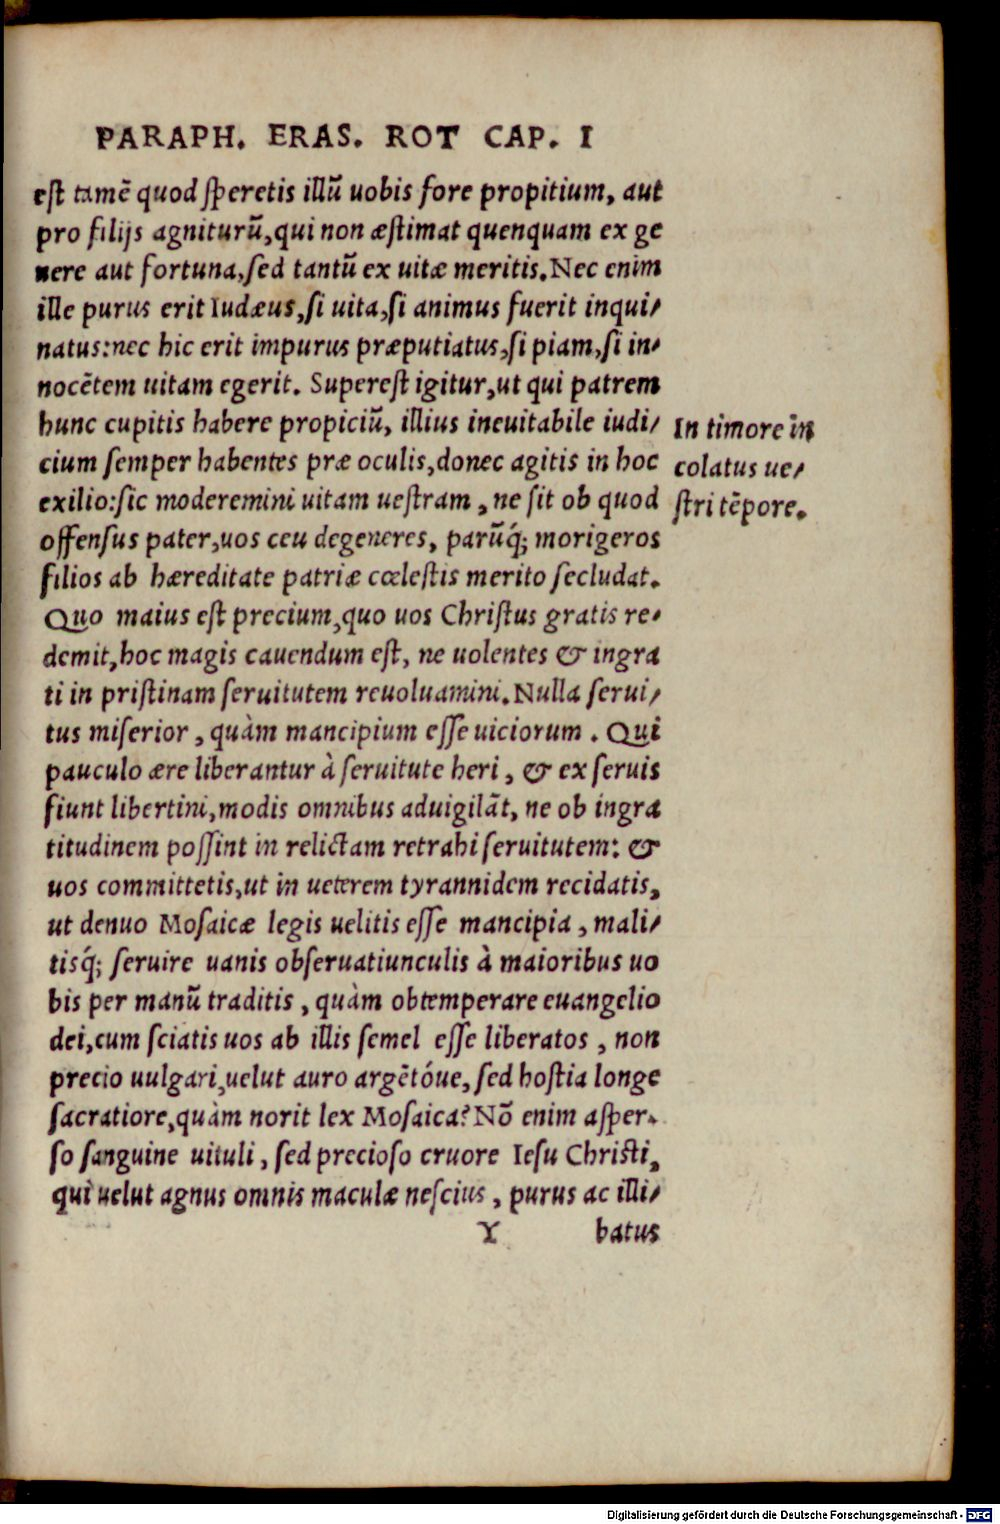 PARAPH. ERAS. ROT CAP. I
est tamē quod speretis illū uobis fore propitium, aut
pro filijs agniturū, qui non æstimat quenquam ex ge
nere aut fortuna, sed tantū ex uitæ meritis. Nec enim
ille purus erit Iudæus, si uita, si animus fuerit inqui/
natus: nec hic erit impurus præputiatus, si piam, si in/
nocētem uitam egerit. Superest igitur, ut qui patrem
hunc cupitis habere propiciū, illius ineuitabile iudi/
cium semper habentes præ oculis, donec agitis in hoc
exilio: sic moderemini uitam uestram, ne sit ob quod
offensus pater, uos ceu degeneres, parūq́; morigeros
filios ab hæreditate patriæ cœlestis merito secludat.
Quo maius est precium, quo uos Christus gratis re/
demit, hoc magis cauendum est, ne uolentes & ingra
ti in pristinam seruitutem reuoluamini. Nulla serui/
tus miserior, quàm mancipium esse uiciorum. Qui
pauculo ære liberantur à seruitute heri, & ex seruis
fiunt libertini, modis omnibus aduigilāt, ne ob ingra
titudinem possint in relictam retrahi seruitutem: &
uos committetis, ut in ueterem tyrannidem recidatis,
ut denuo Mosaicæ legis uelitis esse mancipia, mali/
tisq́; seruire uanis obseruatiunculis à maioribus uo
bis per manū traditis, quàm obtemperare euangelio
dei, cum sciatis uos ab illis semel esse liberatos, non
precio uulgari, uelut auro argētóue, sed hostia longe
sacratiore, quàm norit lex Mosaica? Nō enim asper/
so sanguine uituli, sed precioso cruore Iesu Christi,
qui uelut agnus omnis maculæ nescius, purus ac illi/
Y batus
In timore in
colatus ue/
stri tēpore.
Digitalisierung gefördert durch die Deutsche Forschungsgemeinschaft - DFG